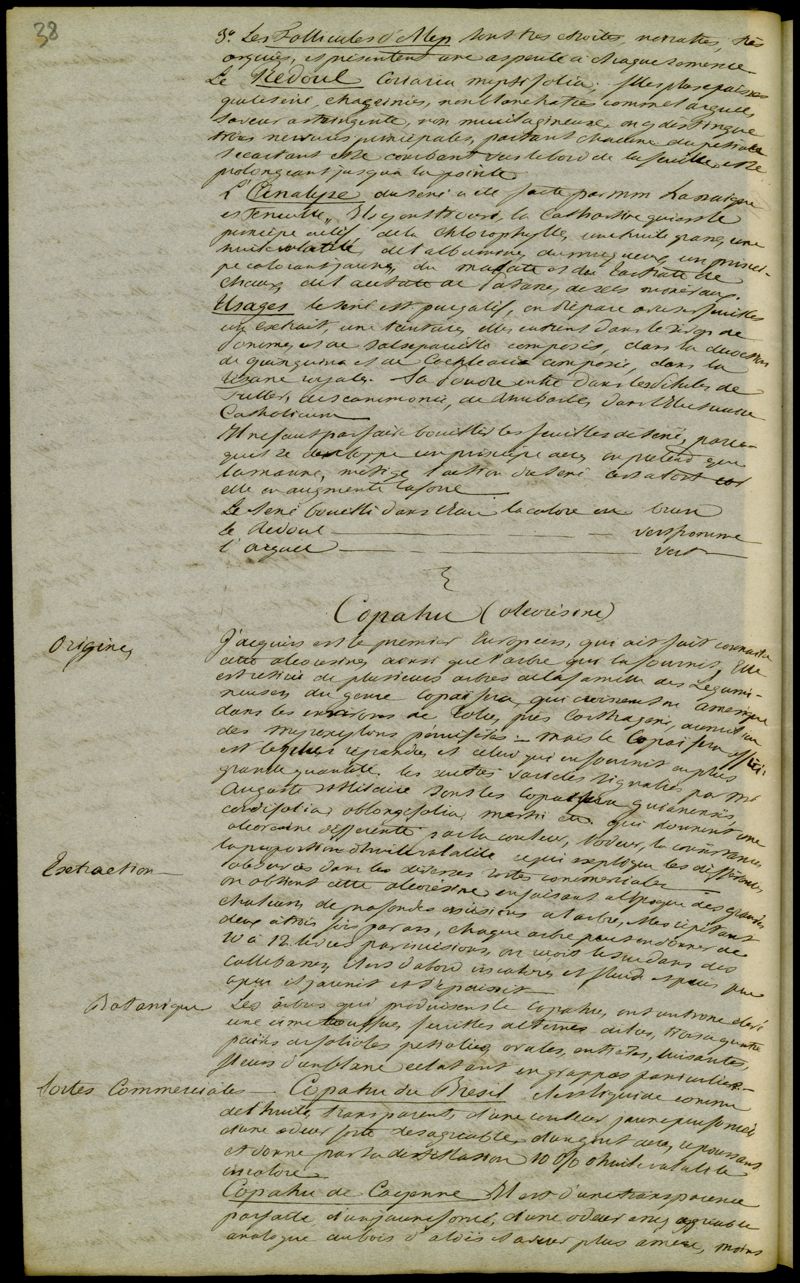 38
3° Les Follicules d'Alep sont très étroites, noiratres, très
arquées, et présentent une aspérité à chaque semence
Le Redoul Coriaria myrtifolia, plus épaisses
que le séné, chagrinées, non blanchatres comme l'arguel,
saveur astringente, non mucilagineuse, on y distingue
trois nervures principales, partant chacune du pétiole
s'écartant et se courbant vers le bord de la feuille, et se
prolongeant jusqu'à la pointe
L'Analyse du séné a été faite par mm Lassaigne
et Feneulle, ils y ont trouvé, la Cathartine qui est le
principe actif de la chlorophylle, une huile grasse, une
huile volatile, de l'albumine, du muqueux, un princi-
pe colorant jaune, du malate et du tartrate de
chaux, de l'acétate de potasse, des sels minéraux.
Usages le séné est purgatif, on prépare avec ses feuilles
un extrait, une teinture, elles entrent dans le sirop de
pommes et de salsepareille composés, dans la décoction
de quinquina et de Cochlearia composée, dans la
tisane royale. Sa poudre entre dans les pilules de
Fuller, de scammonée, de rhubarbe, dans l'électuaire
Catholicum
Il ne faut pas faire bouillir les feuilles de séné, parce-
qu'il se développe un principe acre, on prétend que
la manne, mitige l'action du séné c'est à tort
elle en augmente la force
Le Séné bouilli dans l'eau la colore en brun
le Redoul vert pomme
l'arguel vert
Copahu (oléorésine)
Origine,
Jacquin est le premier Européen, qui ait fait connaitre
cette oléorésine, ainsi que l'arbre qui la fournit, Elle
est retirée de plusieurs arbres de la famille des Légumi-
neuses, du genre Copaifera, qui croissent en amérique
dans les environs de Tolu, près Carthagène,
des myroxylons péruifères — mais le Copaifera offici-
est le plus répandu, et celui qui en fournit en plus
grande quantité les autres variétés signalées par Mr
Auguste St Hilaire sont les Copaifera guianensis,
cordifolia, oblongifolia, martii etc qui donnent une
oléorésine différente par la couleur, l'odeur, la consistance
la proportion d'huile volatile ce qui explique les différences
observées dans les diverses sortes commerciales
Extraction
on obtient cette oléorésine en faisant à l'époque des grandes
chaleurs de profondes incisions à l'arbre, elles se répètent
deux à trois fois par an, chaque arbre peut en donner de
10 à 12 livres par incisions, on reçoit le suc dans des
callebasses, il est d'abord incolore, et fluide, puis peu
à peu il jaunit et s'épaissit
Botanique
Les arbres qui produisent le Copahu, ont un tronc élevé
une cime touffue, feuilles alternes ailées, trois à quatre
pairs de folioles pétiolées, ovales, entières, luisantes,
fleurs d'un blanc éclatant en grappes paniculées
Sortes Commerciales — Copahu du Bresil il est liquide comme
de l'huile, transparent, d'une couleur jaune peu foncée
d'une odeur forte désagréable, d'un goût acre, repoussant
et donne par la distillation 40 % d'huile volatile
incolore
Copahu de Cayenne Il est d'une transparence
parfaite d'un jaune foncé, d'une odeur assez agréable
analogue au bois d'aloès, saveur plus amère, moins